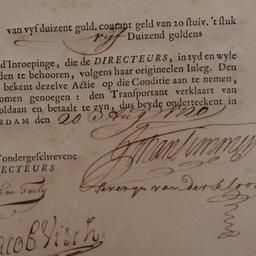 van vyf duizent guld. courant geld van 20 stuiv. 't stuk
vyf Duizend guldens
d'Inroepinge, die de DIRECTEURS, in tyd en wyle
den te behooren, volgens haar origineelen Inleg. Den
bekent dezelve Actie op die Conditie aan te nemen,
omen genoegen: den Transportant verklaart van
oldaan en betaalt te zyn, dus beyde onderteekent in
RDAM den 20 Aug 1720
'ondergeschrevene
ECTEURS
van der
Jacob Visch